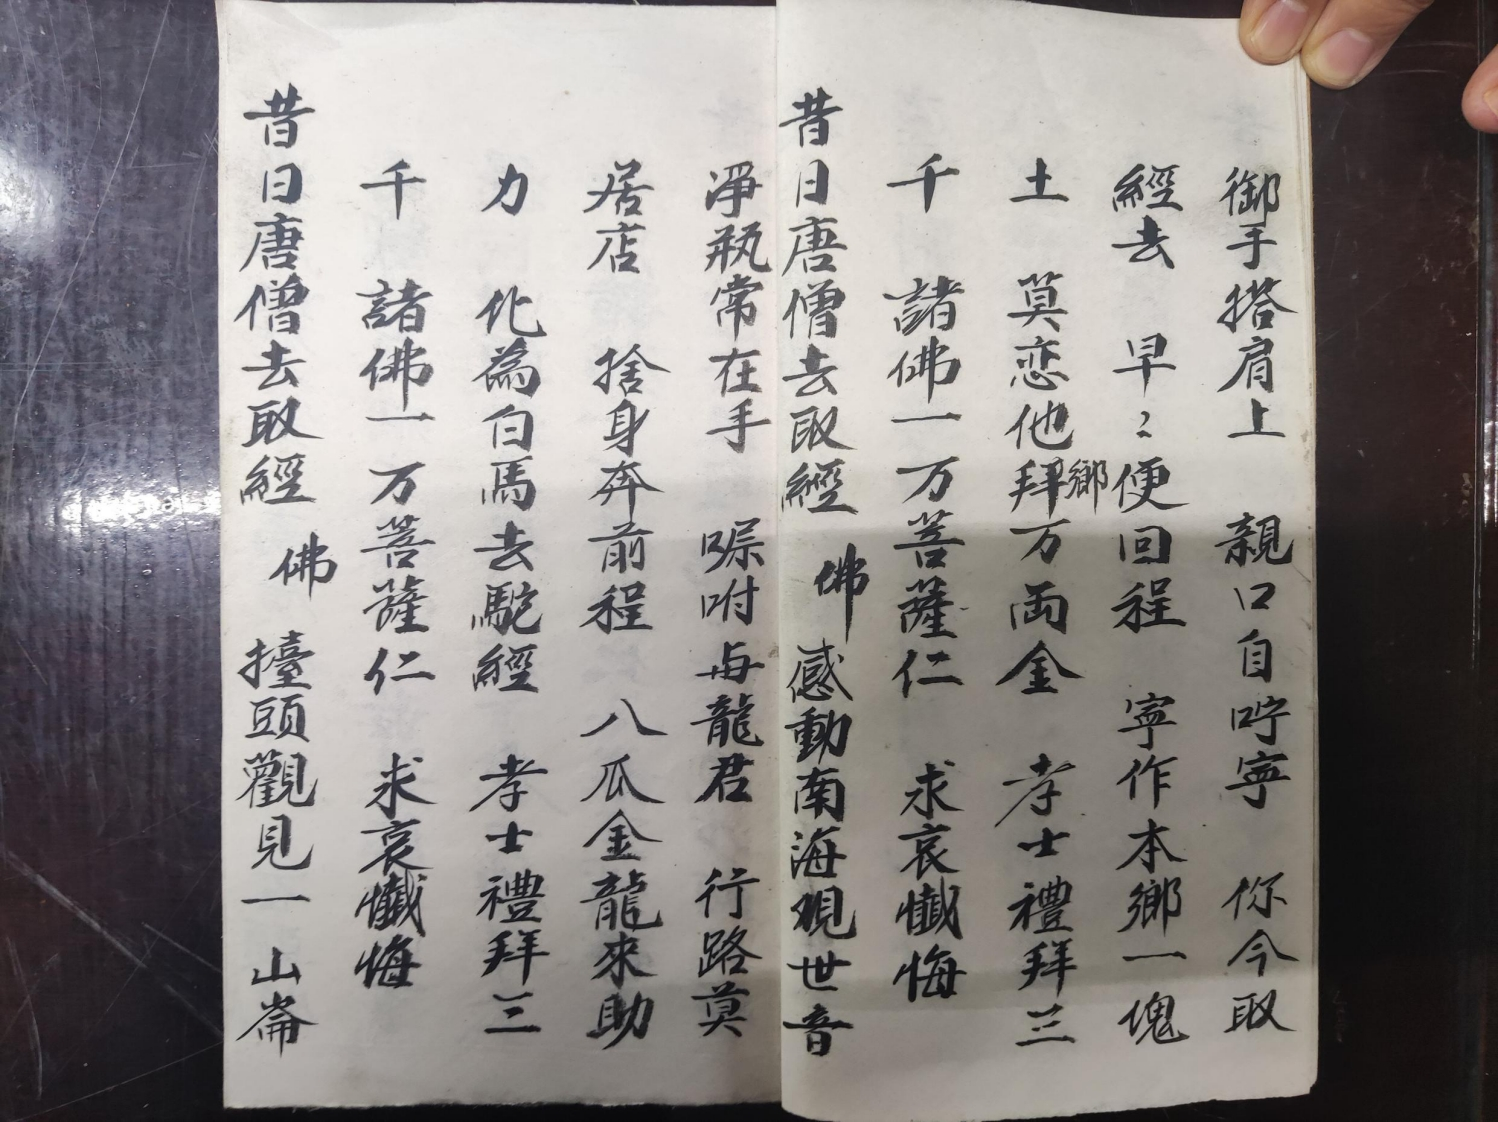 御手搭肩上　親口自咛寧　你今取
經去　早〻便回程　寧作本鄉一塊
土　莫恋他鄉拜万両金　孝士禮拜三
千　諸佛一万菩薩仁　求哀懺悔
昔日唐僧去取經　佛　感動南海观世音
淨瓶常在手　嘱咐与龍君　行路莫
居店　捨身奔前程　八瓜金龍來助
力　化為白馬去駝經　孝士禮拜三
千　諸佛一万菩薩仁　求哀懺悔
昔日唐僧去取經　佛　擡頭觀見一山崙